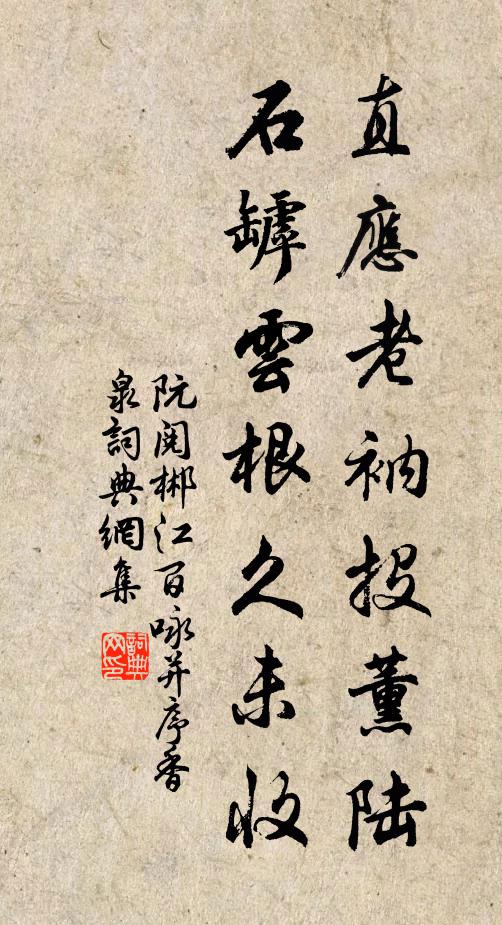 直應老衲投薰陸
石罅雲根久未收
阮閱郴江百咏并序香
泉詞典網集
詞典網印